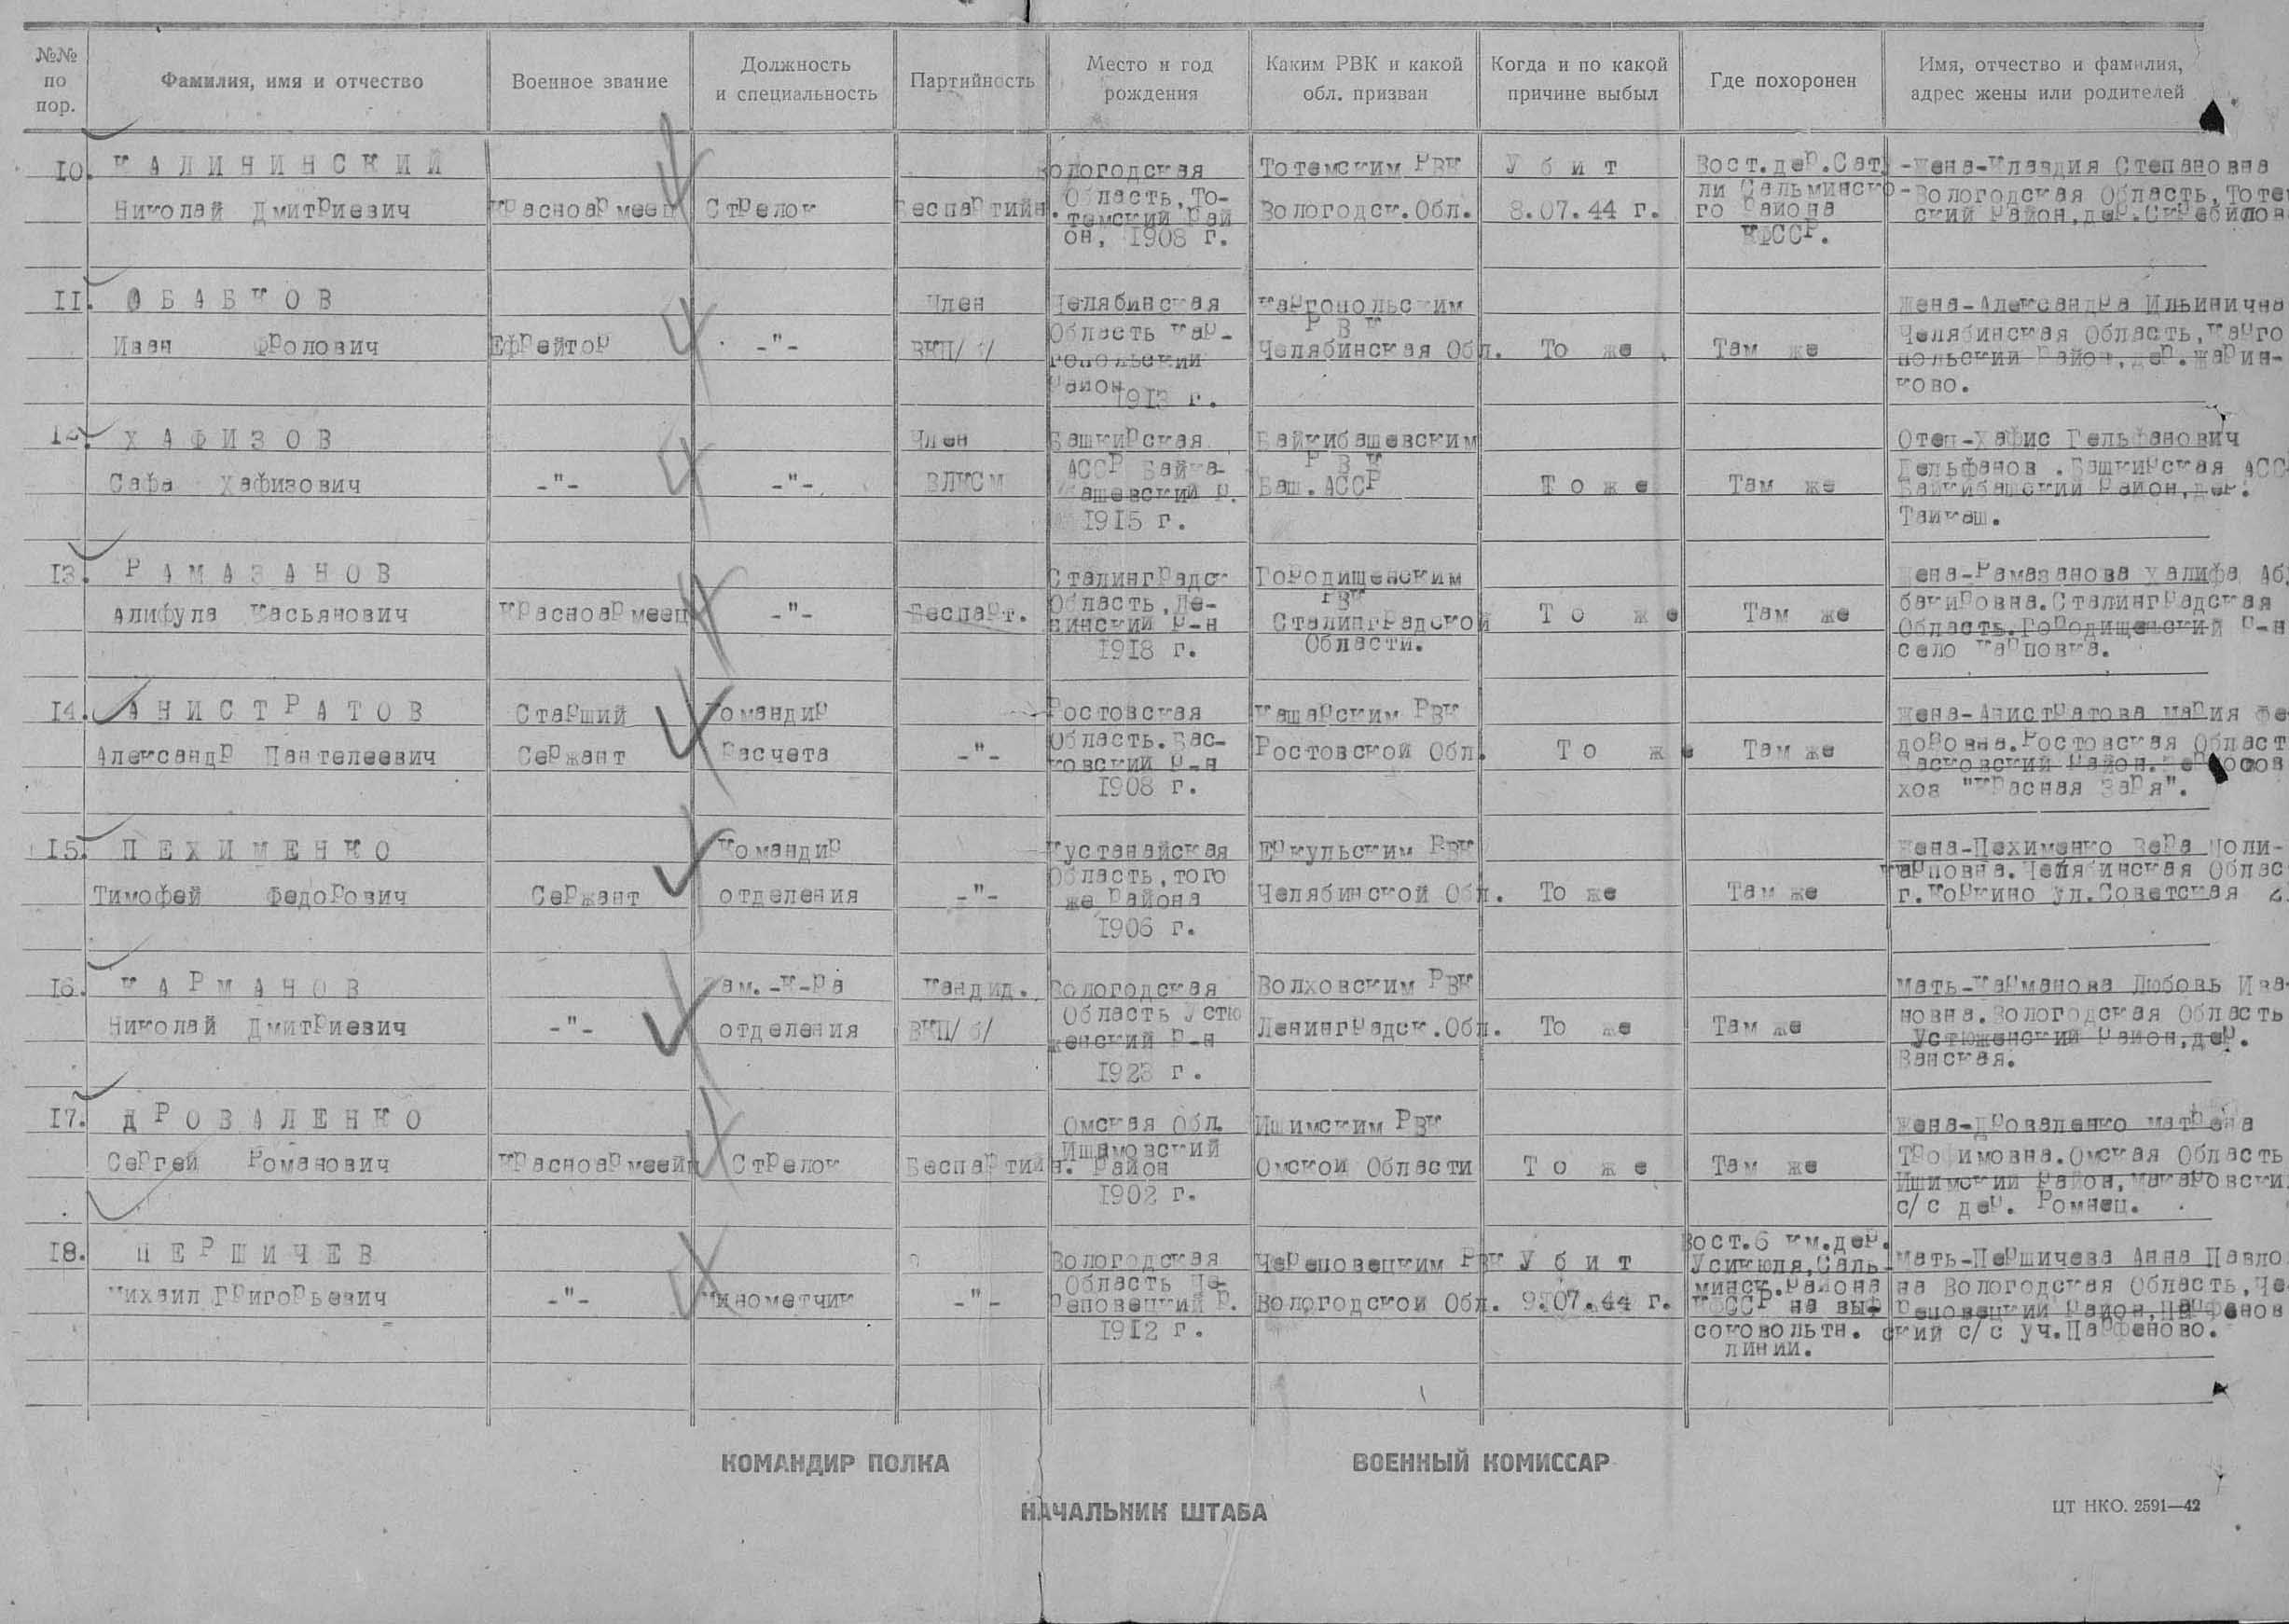 №№ по пор.
Фамилия, имя и отчество
Военное звание
Должность и специальность
Партийность
Место и год рождения
Каким РВК и какой обл. призван
Когда и по какой причине выбыл
Где похоронен
Имя, отчество и фамилия, адрес жены или родителей
10. КАЛИНИНСКИЙ
Николай Дмитриевич
Красноармеец
Стрелок
Беспартийн.
Вологодская
Область, То-
темский Рай
он, 1908 г.
Тотемским РВК
Вологодск. Обл.
Убит
8.07.44 г.
Вост. дер. Сат
ли Сальминско
го Района
КФССР.
-Жена-Клавдия Степановна
-Вологодская Область, Тоте
ский Район, дер.
11. ОБАБКОВ
Иван Фролович
Ефрейтор
-"-
Член
ВКП/б/
Челябинская
Область Кар-
гопольский
Район
1913 г.
Каргопольским
РВК
Челябинская Обл.
То же
Там же
Жена-Александра Ильинична
Челябинская Область, Карго
польский Район, дер. Жарни-
ково.
12. ХАФИЗОВ
Сафа Хафизович
-"-
-"-
Член
ВЛКСМ
Башкирская
АССР Байка-
башевский Р.
1915 г.
Байкибашевским
РВК
Баш. АССР
То же
Там же
Отец-Хафис Гельфанович
Гельфанов. Башкирская АСС
Байкибашский Район, дер.
Таикаш.
13. РАМАЗАНОВ
Алифула Касьянович
Красноармеец
-"-
Беспарт.
Сталинградск
Область, Ле-
нинский Р-н
1918 г.
Городищенским
РВК
Сталинградской
Области.
То же
Там же
Жена-Рамазанова Халифа Аб
бакировна. Сталинградская
Область. Городищенский Р-н
село Карповка.
14. АНИСТРАТОВ
Александр Пантелеевич
Старший
Сержант
Командир
Расчета
-"-
Ростовская
Область. Вас-
ковский Р-н
1908 г.
Кашарским РВК
Ростовской Обл.
То же
Там же
Жена-Анистратова Мария Фе
доровна. Ростовская Област
Васковский Район.
хоз "Красная Заря".
15. ПЕХИМЕНКО
Тимофей Федорович
Сержант
Командир
отделения
-"-
Кустанайская
Область, того
же Района
1906 г.
Еркульским РВК
Челябинской Обл.
То же
Там же
Жена-Пехименко Вера Поли-
карповна. Челябинская Облас
г. Коркино ул. Советская
16. КАРМАНОВ
Николай Дмитриевич
-"-
Зам.-К-ра
отделения
Кандид.
ВКП/б/
Вологодская
Область Устю
женский Р-н
1923 г.
Волховским РВК
Ленинградск. Обл.
То же
Там же
Мать-Карманова Любовь Ива-
новна. Вологодская Область
Устюженский Район, дер.
Ванская.
17. ДРОВАЛЕНКО
Сергей Романович
Красноармеец
Стрелок
Беспартийн.
Омская Обл.
Ишимовский
Район
1902 г.
Ишимским РВК
Омской Области
То же
Там же
Жена-Дроваленко Матрена
Трофимовна. Омская Область
Ишимский Район, Макаровски
с/с дер. Ромнец.
18. ПЕРШИЧЕВ
Михаил Григорьевич
-"-
Минометчик
-"-
Вологодская
Область Че-
реповецкий Р.
1912 г.
Череповецким РВК
Вологодской Обл.
Убит
9.07.44 г.
Вост. 6 км. дер.
Усикюля, Саль-
минск. Района
КФССР на выс
соковольтн.
линии.
Мать-Першичева Анна Павло
на Вологодская Область, Че
реповецкий Район, Парфенов
ский с/с уч. Парфеново.
КОМАНДИР ПОЛКА
ВОЕННЫЙ КОМИССАР
НАЧАЛЬНИК ШТАБА
ЦТ НКО. 2591—42